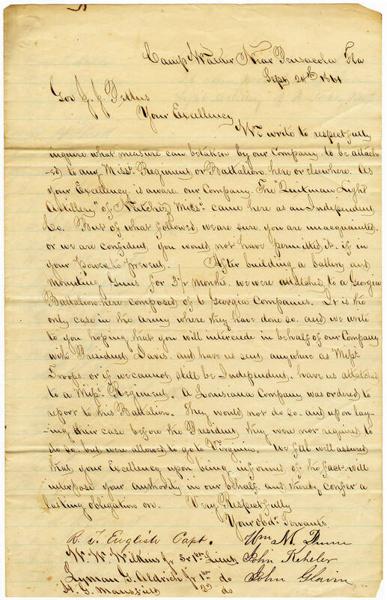 Camp Walker Near Pensacola Fla
Sept 20th 1861
Gov J. J. Pettus
Your Excellency
We write to respectfully
inquire what measure can be taken by our Company to be attach-
ed to any Miss. Regiment or Battalion here or elsewhere. As
your Excellency is aware our Company. The "Quitman Light
Artillery" of Natchez Miss. came here as an Independent
Co. But of what followed, we are sure you are unacquainted.
or we are confident, you would not have permitted it. if in
your power to prevent. After building a battery and
mounting Guns for months. we were attached to a Georgia
Battalion here composed of Georgia Companies. It is the
only case in the Army where they have done so. and we write
to you hoping that you will intercede in behalf of our Company
with President Davis. and have us sent anywhere as Miss.
Troops or if we cannot still be Independent. have us attached
to a Miss. Regiment. A Louisiana Company was ordered to
report to this Battalion. They would not do so. and upon lay-
ing their case before the President, they were not required to
do so. but were allowed to go to Virginia. We feel assured
that your Excellency upon being informed of the facts will
interpose your authority in our behalf. and thereby confer a
lasting obligation on. Very Respectfully
Your obdt. Servants
R. T. English Capt. Wm M. Dunn
W. W. Wilkins Jr 1st Lieut John
Lyman G. Aldrich Jr 1st do John Glavin
A. G. 2d do